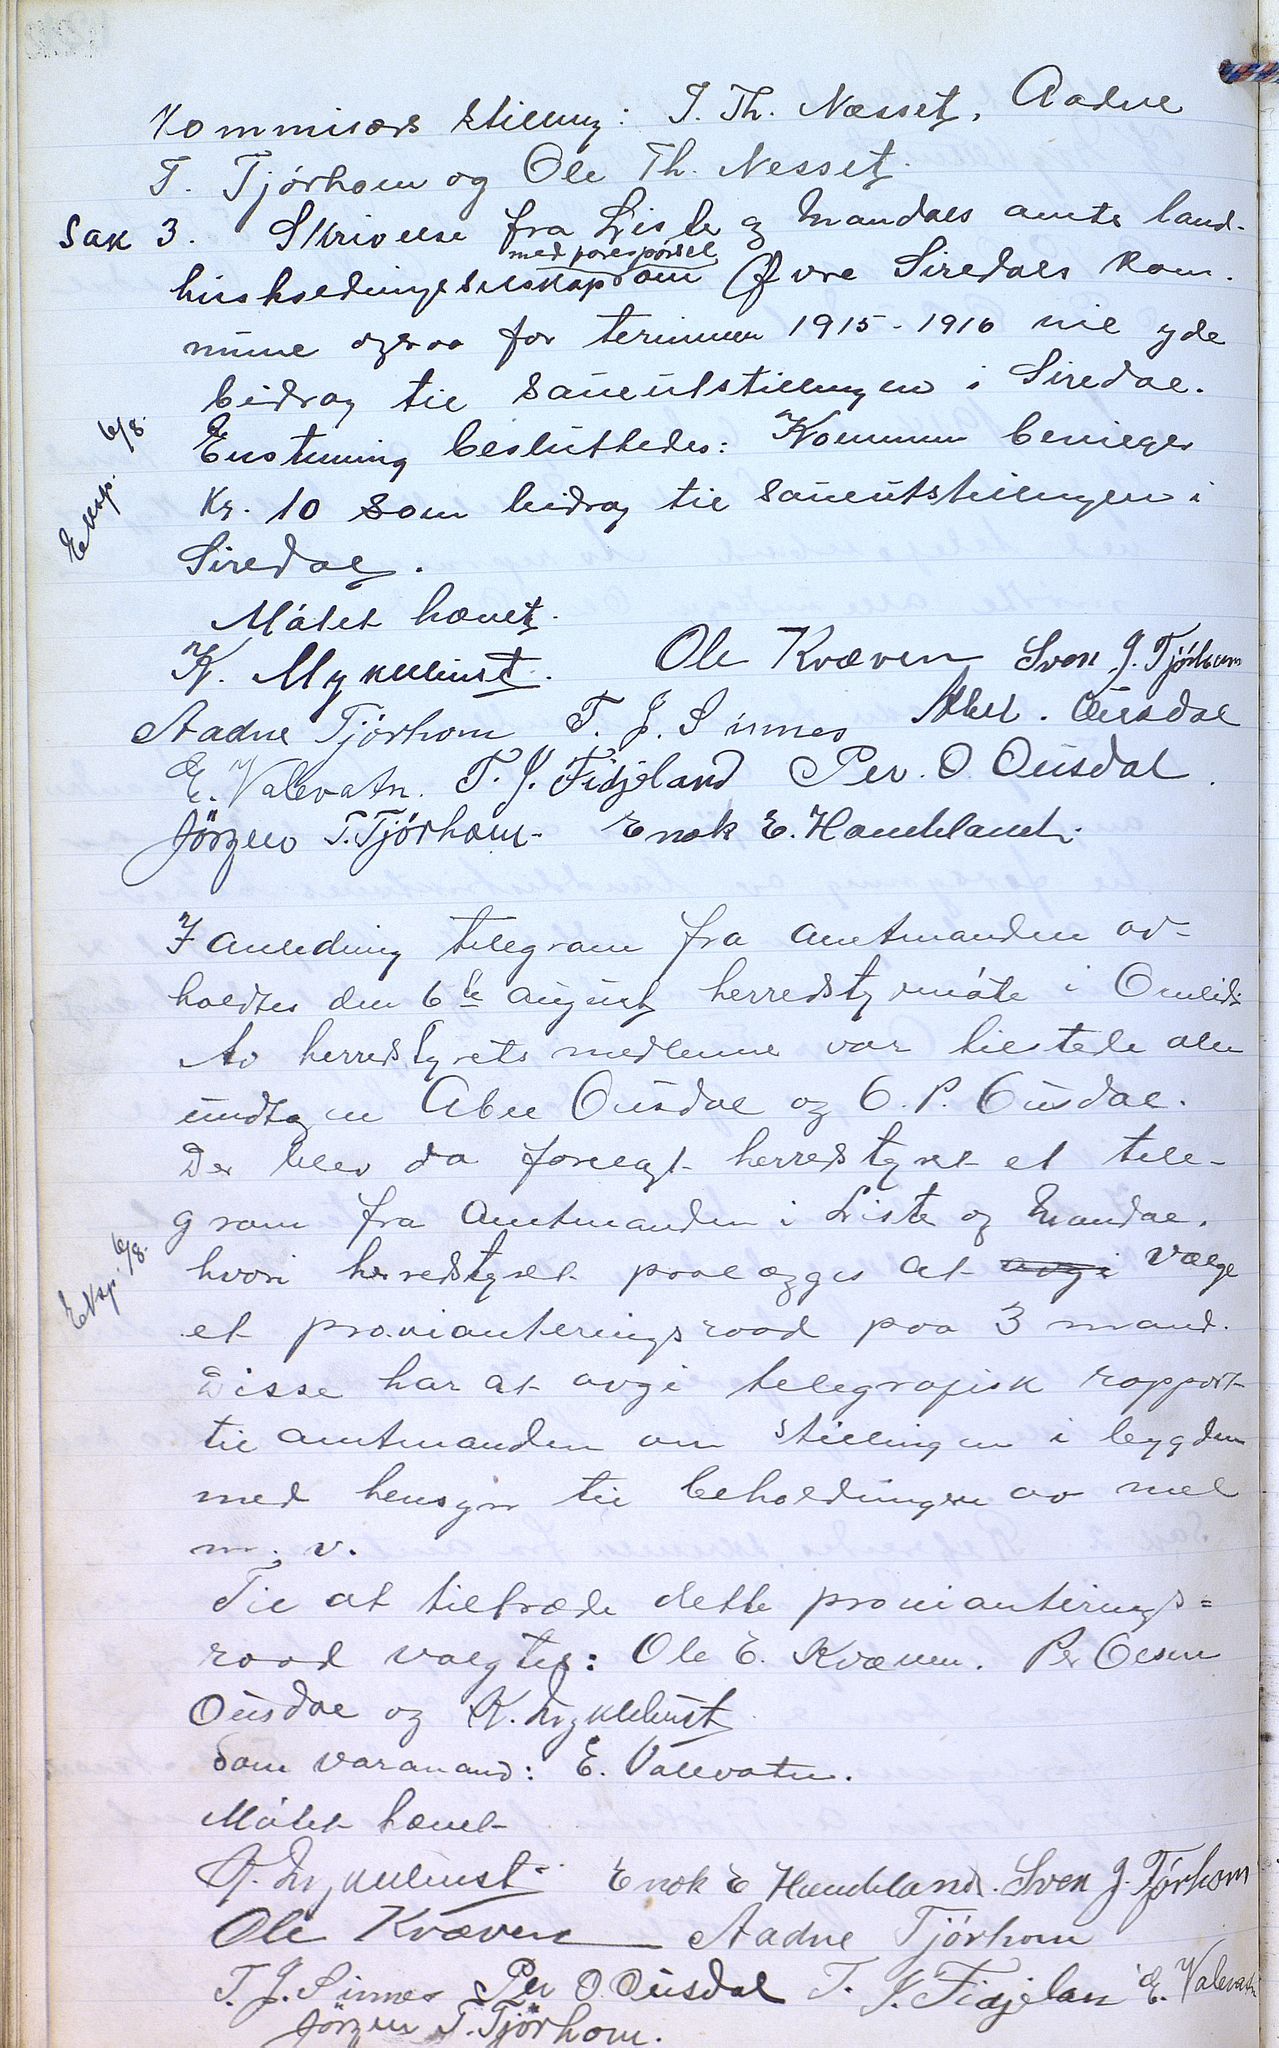 Kommisærs stilling: T. Th. Nesset, Aadne
T. Tjørhom og Ole Th. Nesset.
Sak 3. Skrivelse fra Lister og Mandals amts land-
med forespørsel
husholdningsselskap om Øvre Siredals kom-
mune ogsaa for terminen 1915-1916 vil yde
bidrag til saueutstillingen i Siredal.
Eksp. 6/8.
Enstemmig besluttedes: Kommunen bevilger
Kr. 10 som bidrag til saueutstillingen i
Siredal.
Møtet hævet.
K. Myklebust. Ole Kvæven Sven J. Tjørhom
Aadne Tjørhom T. J. Sinnes Abel. Ousdal
E. Valevatn. T. J. Fidjeland Per. O. Ousdal.
Jörgen T. Tjörhom. Enok E. Haughland.
I anledning telegram fra amtmanden av-
holdtes den 6te august herredstyrmøte i Omlid.
Av herredstyrets medlemmer var tilstede alle
undtagen Abel Ousdal og O. P. Ousdal.
Der blev da forelagt herredstyret et tele-
gram fra Amtmanden i Lister og Mandal.
Eksp. 6/8.
hvori herredstyret paalægges at avgi vælge
et provianteringsraad paa 3 mand.
Disse har at avgi telegrafisk rapport
til amtmanden om stillingen i bygden
med hensyn til beholdningen av mel
m. v.
Til at tiltræde dette provianterings=
raad valgtes: Ole E. Kvæven. Per Olsen
Ousdal og K. Myklebust
Som varamand: E. Valevatn.
Møtet hævet
K. Myklebust. Enok E Haughland. Sven J. Tjørhom
Ole Kvæven Aadne Tjörhom
T. J. Sinnes Per O. Ousdal T. J. Fidjelan E. Valevatn
Jörgen T. Tjörhom.